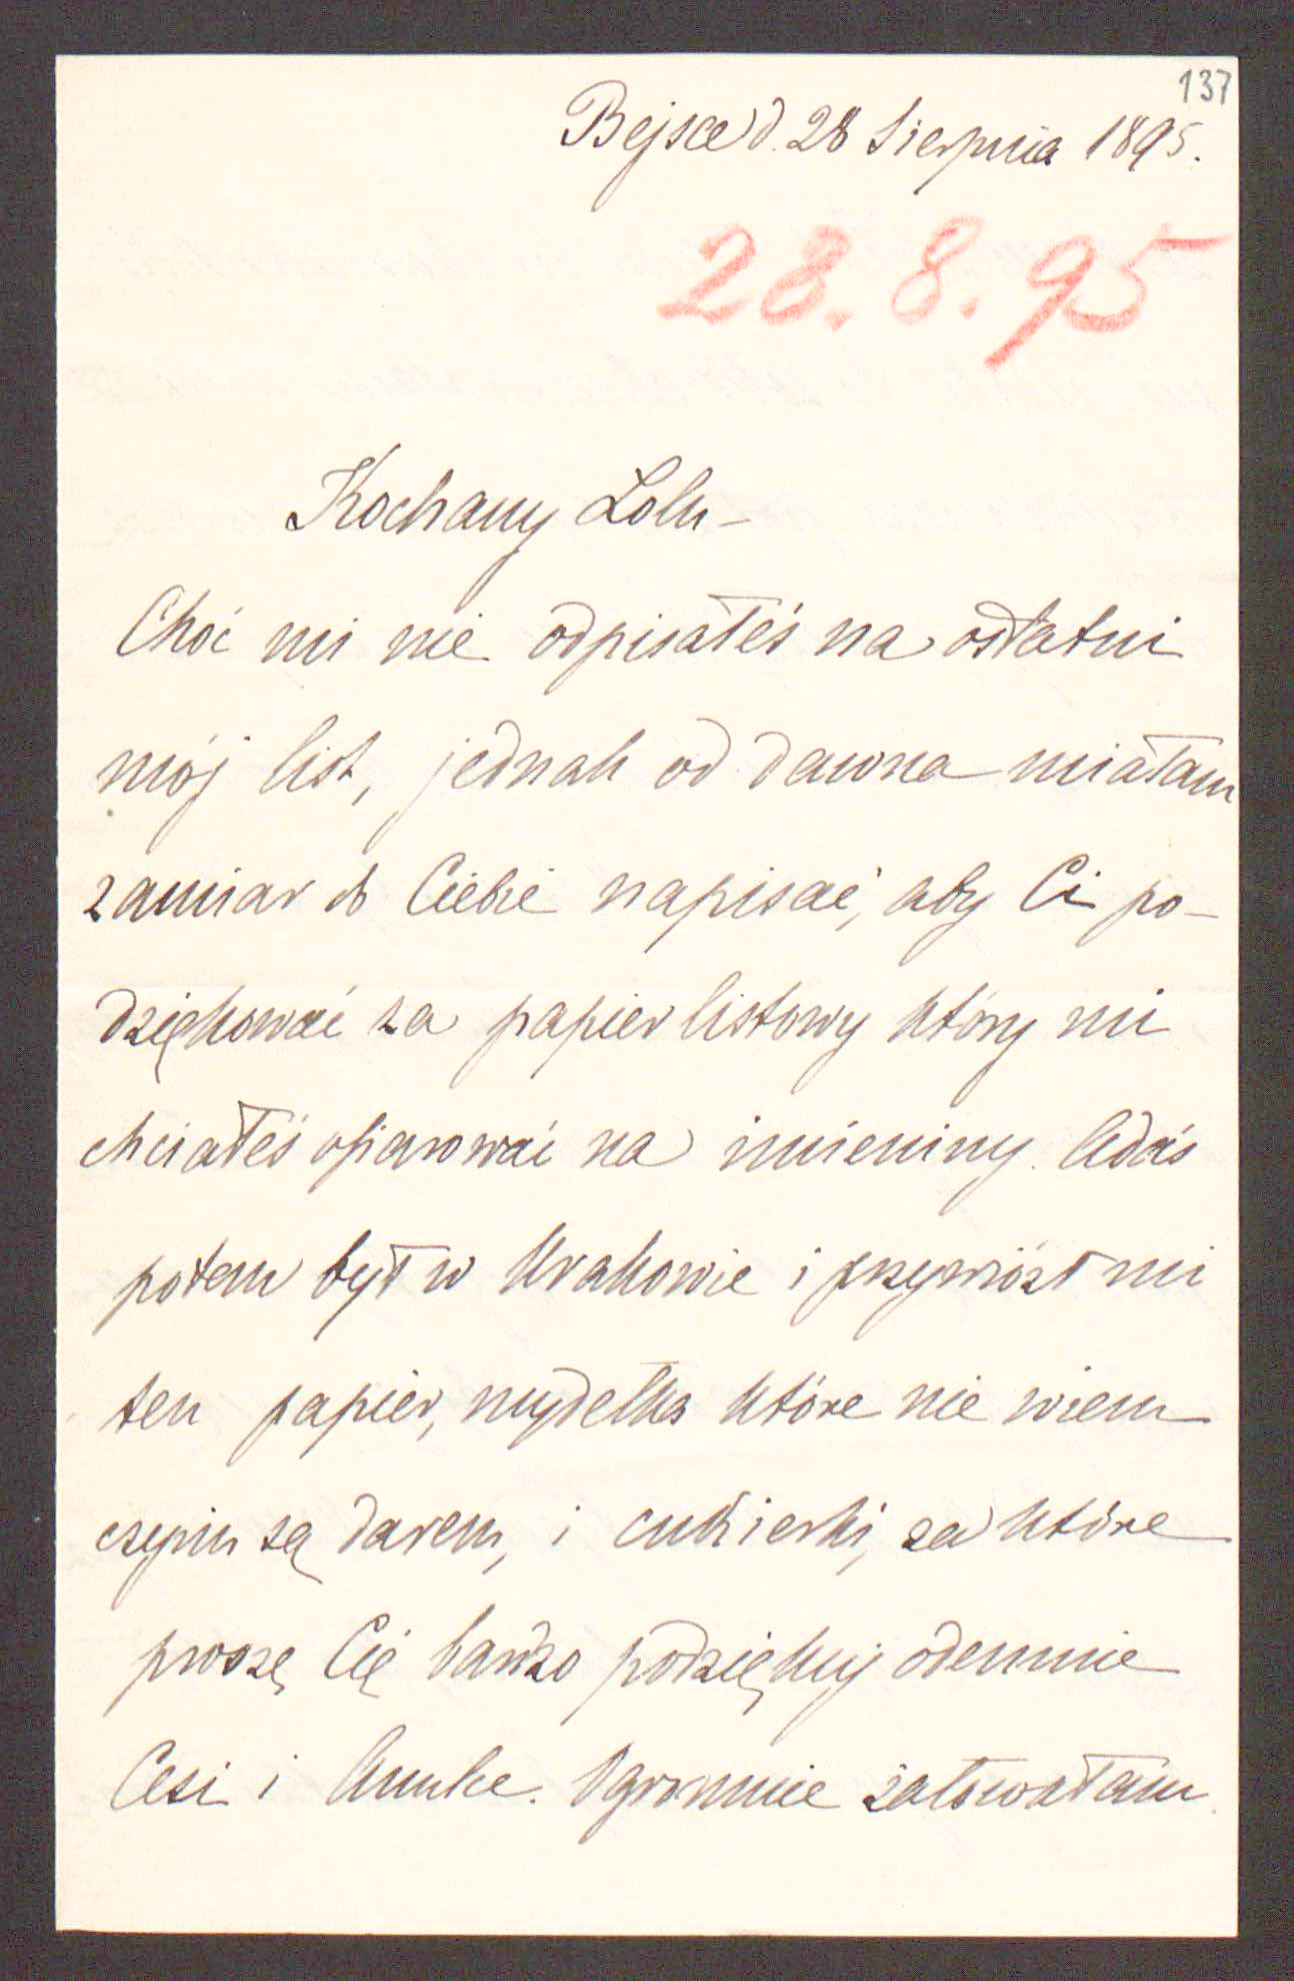 137
Bejsce d. 28 Sierpnia 1895.
28. 8. 95
Kochany Lolu –
Choć mi nie odpisałeś na ostatni
mój list, jednak od dawna miałam
zamiar do Ciebie napisać, aby Ci po-
dziękować za papier listowy który mi
chciałeś ofiarować na imieniny. Adaś
potem był w Krakowie i przywiózł mi
ten papier, mydełka które nie wiem
czyim są darem, i cukierki, za które
proszę Cię bardzo podziękuj odemnie
Cesi i Annke. Ogromnie żałowałam